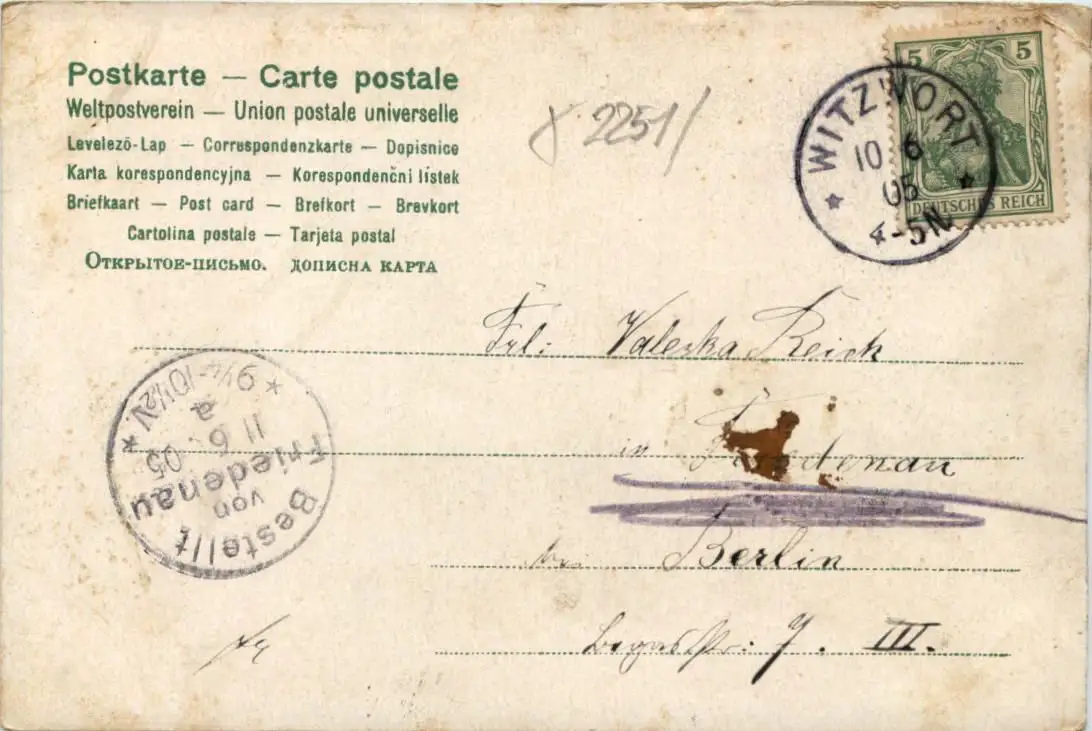 Postkarte — Carte postale
Weltpostverein — Union postale universelle
Levelező-Lap — Correspondenzkarte — Dopisnice
Karta korespondencyjna — Korespondenčni listek
Briefkaart — Post card — Brefkort — Brevkort
Cartolina postale — Tarjeta postal
Открытое-письмо. дописна карта
2251/
5 5
DEUTSCHES REICH
* WITZWORT *
10 6
05
4-5N
Frl: Valeska Reich
in Friedenau
bei Berlin
Begasstr: 7. III.
Bestellt
von
Friedenau
11 6 05
a
* 9¼-10½V *